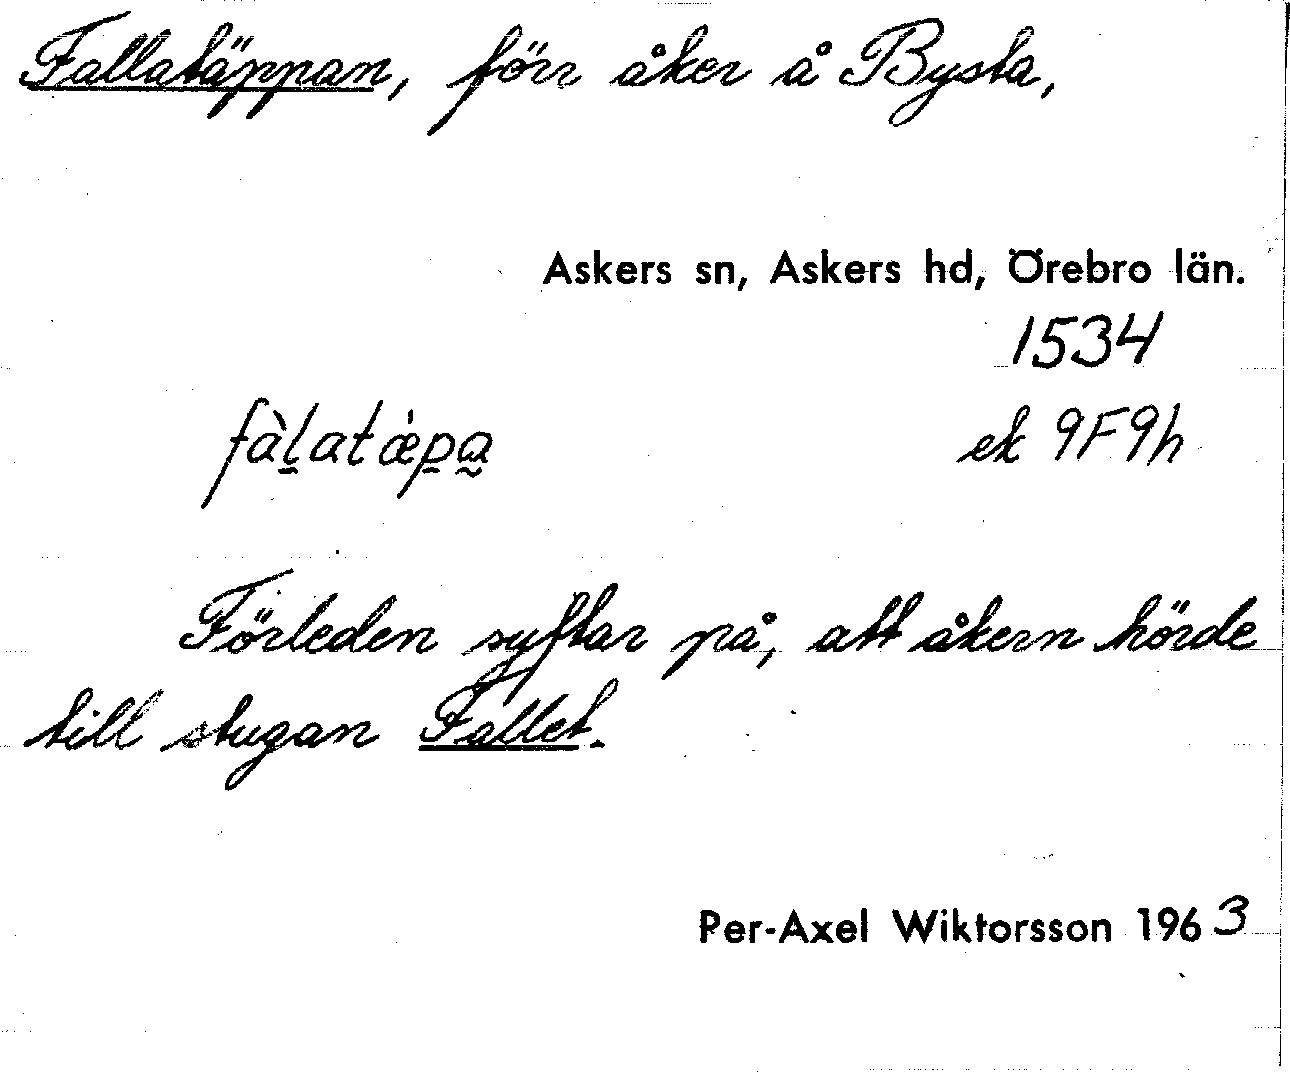 Fallatäppan, förr åker å Bysta,
Askers sn, Askers hd, Örebro län.
1534
fàl̠atǽp̠a̰
ek 9F9h
Förleden syftar på, att åkern hörde
till stugan Fallet.
Per-Axel Wiktorsson 1963